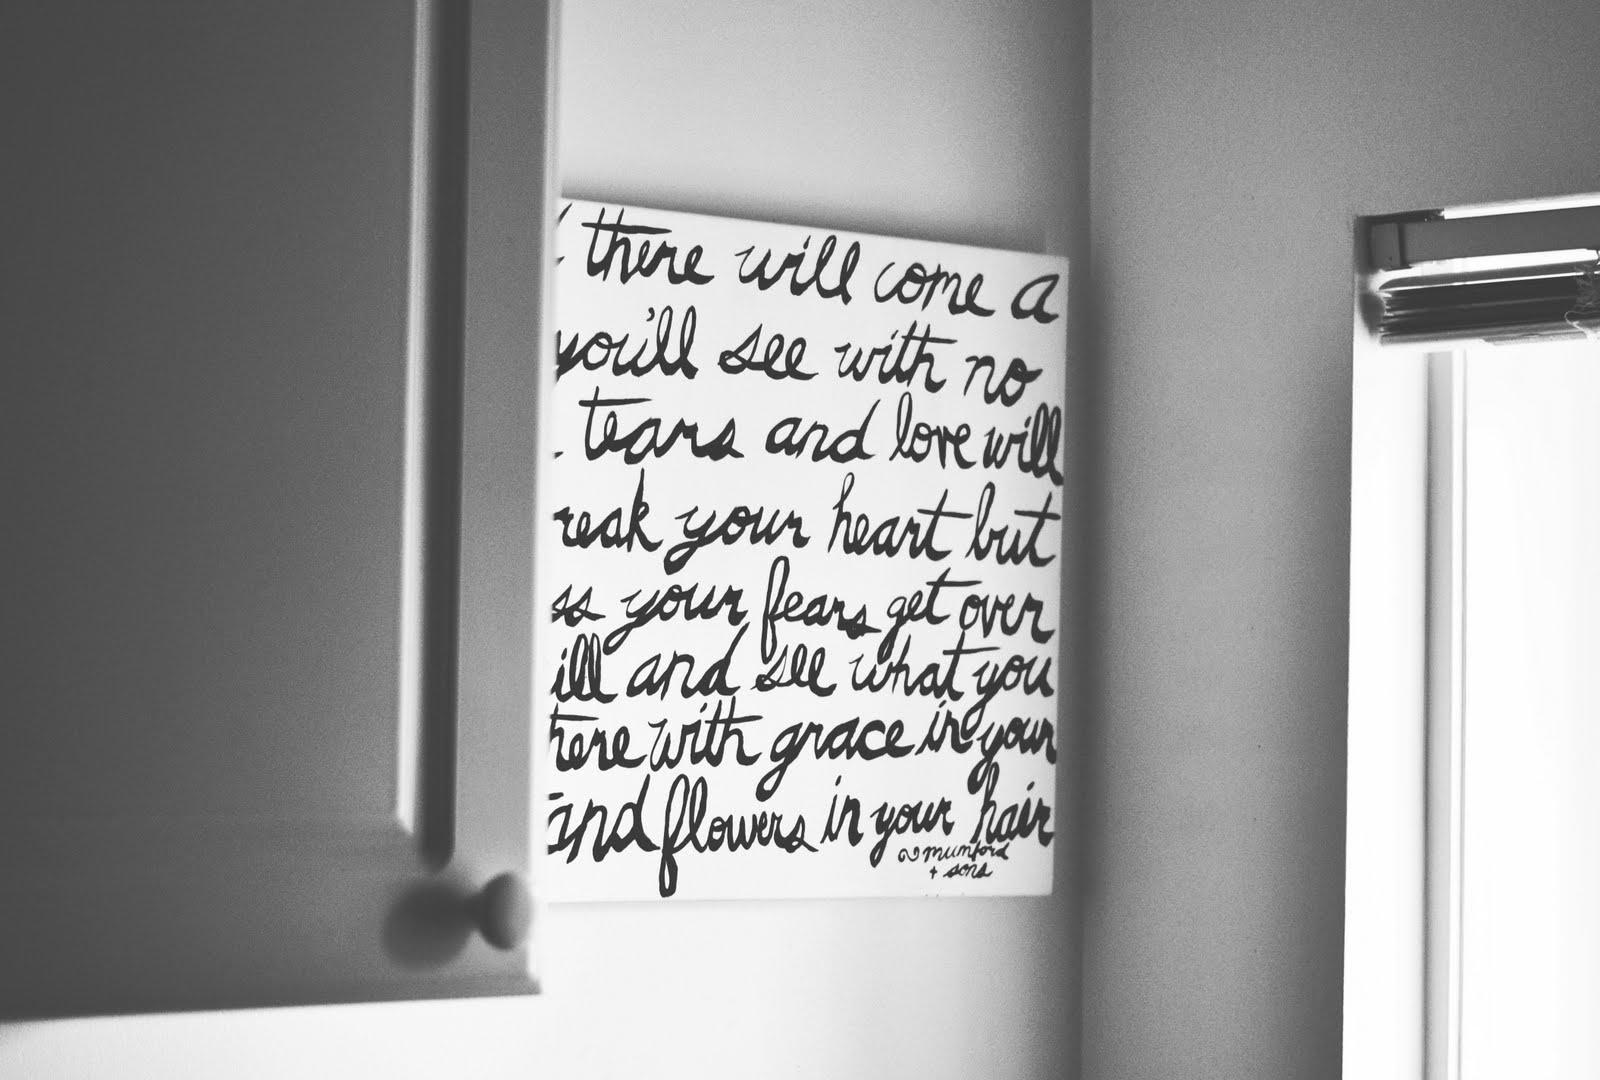 there will come a
you'll see with no
tears and love will
reak your heart but
ss your fears get over
ill and see what you
here with grace in your
and flowers in your hair
~ mumford
+ sons